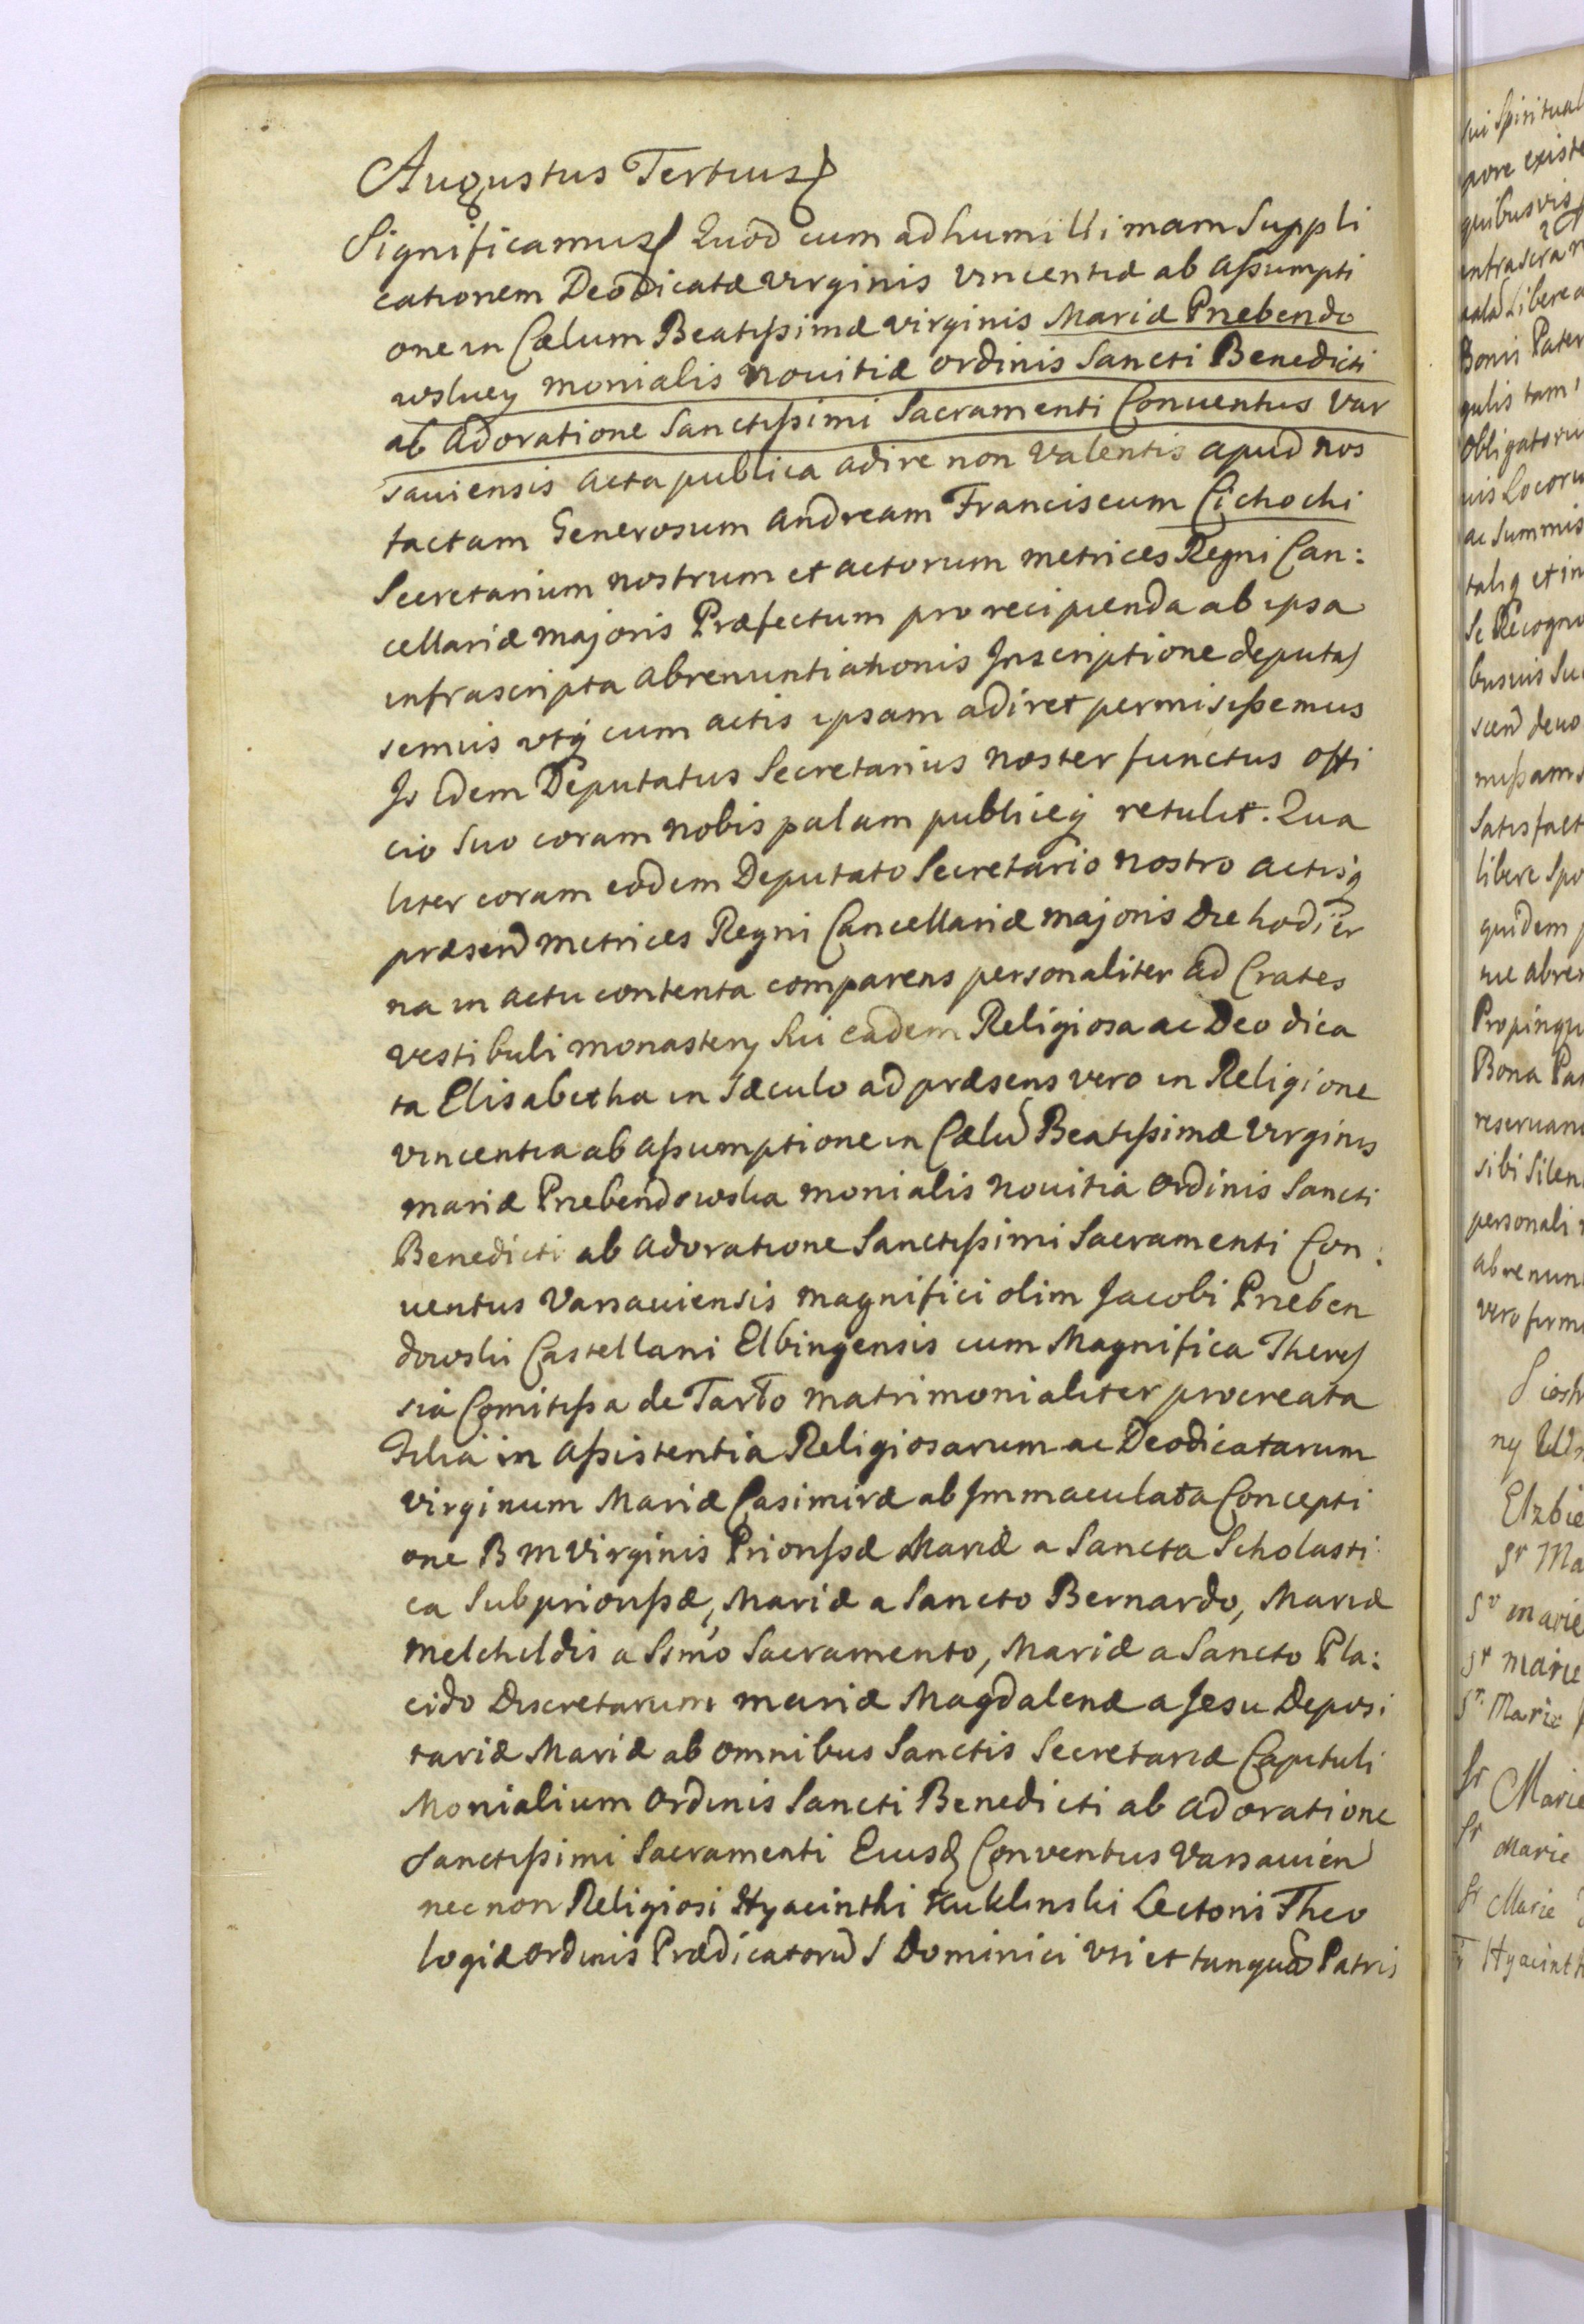 Augustus Tertius
Significamus Quod cum ad humillimam Suppli
cationem Deodicatæ virginis Vincentiæ ab Assumpti
one in Cælum Beatissimæ virginis Mariæ Przebendo
wskiey monialis novitiæ ordinis Sancti Benedicti
ab Adoratione Sanctissimi Sacramenti Conventus Var
saviensis acta publica adire non valentis apud nos
factam Generosum Andream Franciscum Cichocki
Secretarium nostrum et actorum metrices Regni Can:
cellariæ majoris Præfectum pro recipienda ab ipsa
infrascripta abrenuntiationis Inscriptione deputas
semus utq cum actis ipsam adiret permisissemus
Is idem Deputatus Secretarius noster functus offi
cio suo coram nobis palam publiceq retulit. Qua
liter coram eodem Deputato Secretario nostro actisq
præsend metrices Regni Cancellariæ majoris Die hodier
na in actu contenta comparens personaliter ad Crates
vestibuli monastery sui eadem Religiosa ac Deo dica
ta Elisabetha in Sæculo ad præsens vero in Religione
vincentia ab assumptione in Cælu Beatissimæ Virginis
mariæ Przebendowska monialis novitia ordinis Sancti
Benedicti ab Adoratione Sanctissimi Sacramenti Con:
ventus Varsaviensis magnifici olim Jacobi Przeben
dowski Castellani Elbingensis cum Magnifica Theres
sia Comitissa de Tarlo matrimonialiter procreata
Filia in assistentia Religiosarum ac Deodicatarum
virginum Mariæ Casimiræ ab Immaculata Concepti
one B M Virginis Priorissæ Mariæ a Sancta Scholasti
ca Subpriorissæ, Mariæ a Sancto Bernardo, Mariæ
Melchildis a Ssmo Sacramento, Mariæ a Sancto Pla:
cido Discretarum mariæ Magdalenæ a Jesu Deposi
tariæ Mariæ ab omnibus Sanctis Secretariæ Capituli
Monialium Ordinis Sancti Benedicti ab adoratione
Sanctissimi Sacramenti Eiusd Conventus Varsavien
nec non Religiosi Hyacinthi Kuklinski Lectoris Theo
logiæ ordinis Prædicatoru S Dominici uti et tanqua Patris
sui Spiritual
pore existe
quibusvis
infrascra
Libere a
Bonis Pater
gulis tam
obligatoru
uis Locoru
ac summis
taliq et in
Se Recogno
busuis Su
scend devo
missam
Satisfact
libere Spo
quidem p
ue abre
Propinqu
Bona Pa
reservan
sibi Silen
personali
abrenun
vero firm
Siostr
ny
Elzbie
Sr Ma
Sr marie
Sr marie
Sr Marie
Sr Marie
Sr Marie
Sr Marie
Hyacint